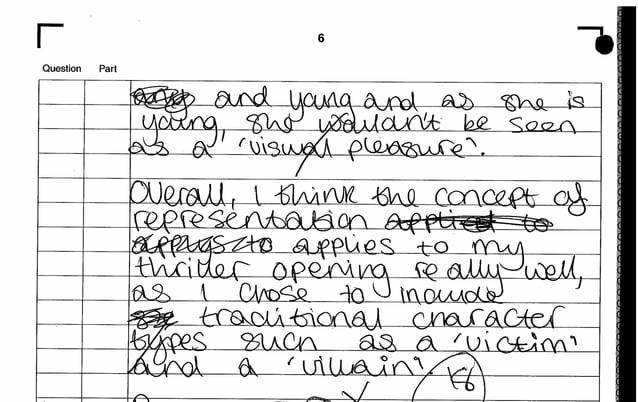 6
Question Part
and young and as she is
young, she wouldn't be seen
as a 'visual pleasure'.
Overall, I think the concept of
representation applied to
applys to applies to my
thriller opening really well,
as I chose to include
traditional character
types such as a 'victim'
and a 'villain'.